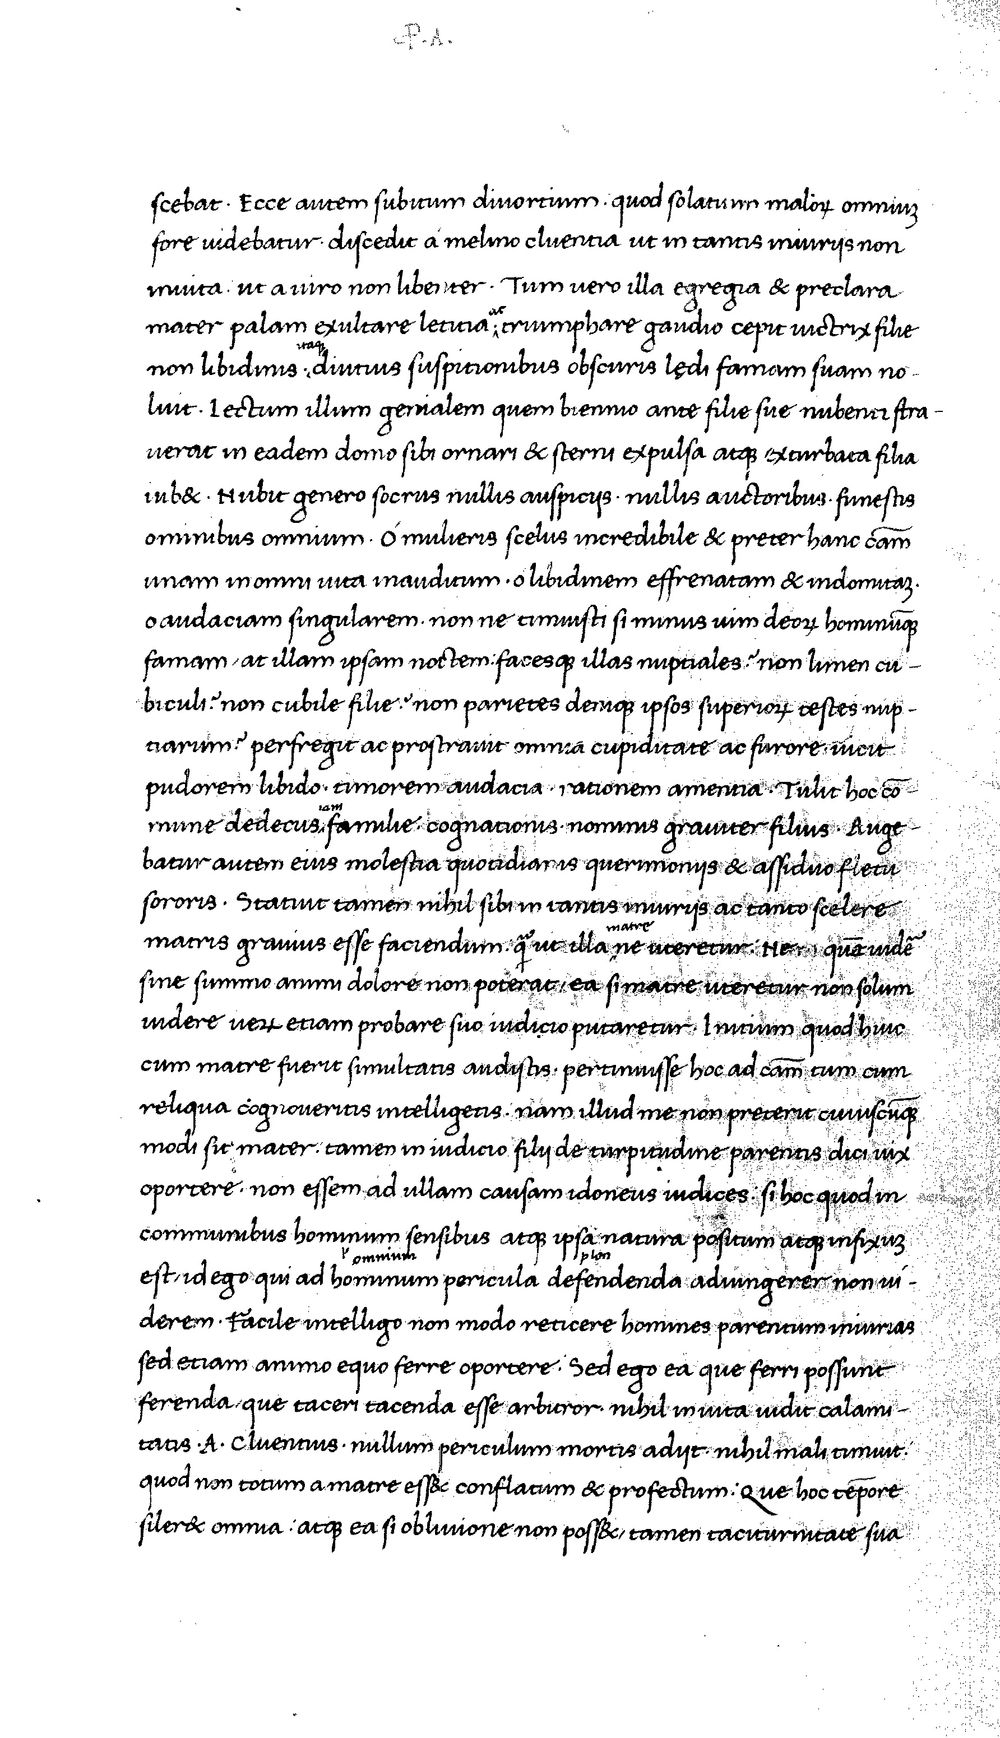 P.A.
scebat. Ecce autem subitum diuortium. quod solatium maloꝝ omniuꝫ
fore uidebatur. discedit a melino cluentia ut in tantis iniurijs non
inuita. ut a uiro non libenter. Tum uero illa egregia & preclara
mater palam exultare letitia ac triumphare gaudio cepit uictrix filie
non libidinis. itaqꝫ diutius suspitionibus obscuris lędi famam suam no-
luit. Lectum illum genialem quem biennio ante filie sue nubenti stra-
uerat in eadem domo sibi ornari & sterni expulsa atqꝫ exturbata filia
iub&. Nubit genero socrus nullis auspicijs. nullis auctoribus. funestis
ominibus omnium. O mulieris scelus incredibile & preter hanc cām
unam in omni uita inauditum. o libidinem effrenatam & indomitaꝫ.
o audaciam singularem. non ne timuisti si minus uim deoꝝ hominūqꝫ
famam, at illam ipsam noctem. facesqꝫ illas nuptiales? non limen cu-
biculi? non cubile filie? non parietes deniqꝫ ipsos superioꝝ testes nup-
tiarum? perfregit ac prostrauit omnia cupiditate ac furore. uicit
pudorem libido. timorem audacia. rationem amentia. Tulit hoc cō-
mune dedecus iam familie. cognationis. nominis grauiter filius. Auge-
batur autem eius molestia quotidianis querimonijs & assiduo fletu
sororis. Statuit tamen nihil sibi in tantis iniurijs ac tanto scelere
matris grauius esse faciendum. q̄ ut illa matre ne uteretur. Ne quē uidē
sine summo animi dolore non poterat, ea si matre uteretur non solum
uidere ueꝝ etiam probare suo iudicio putaretur. Initium quod huic
cum matre fuerit simultatis audistis. pertinuisse hoc ad cām tum cum
reliqua cognoueritis intelligetis. nam illud me non preterit cuiuscūqꝫ
modi sit mater. tamen in iudicio filij de turpitudine parentis dici uix
oportere. non essem ad ullam causam idoneus iudices. si hoc quod in
communibus hominum sensibus atqꝫ ipsa natura positum atqꝫ infixuꝫ
est, id ego qui ad hominum omnium pericula defendenda adiungerer non ui-
derem. Facile intelligo non modo reticere homines parentum iniurias
sed etiam animo equo ferre oportere. Sed ego ea que ferri possunt
ferenda, que taceri tacenda esse arbitror. nihil in uita uidit calami-
tatis .A. Cluentius. nullum periculum mortis adijt. nihil mali timuit.
quod non totum a matre ess& conflatum & profectum. Que hoc tēpore
siler& omnia. atqꝫ ea si obliuione non poss&, tamen taciturnitate sua